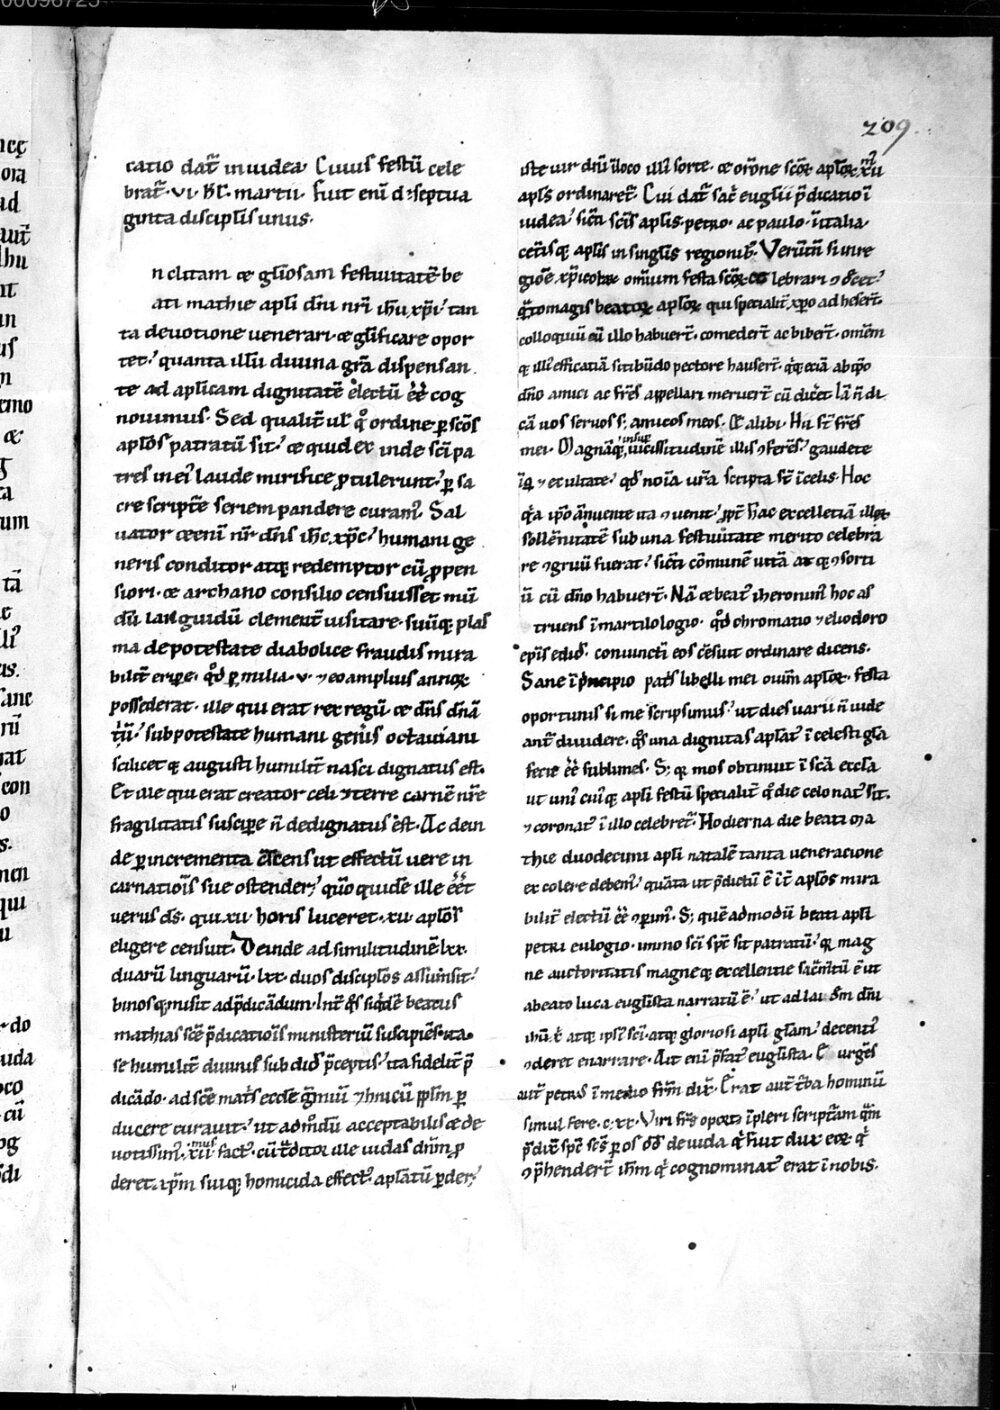 209
catio dat᷑ in iudea. Cuius festū cele
brat᷑ .vi. kl. martii. Fuit eni d septua
ginta discipl̄is unus.
nclitam & gl̄iosam festiuitatē be
ati mathie apl̄i dn̄i nr̄i ih̄u xp̄i, tan
ta deuotione uenerari & gl̄ificare opor
tet, quanta illū diuina gr̄a dispensan
te ad apl̄icam dignitatē electū eē cog
nouimus. Sed qualit̄ ul̄ qͦ ordine p scōs
apl̄os patratū sit, & quid ex inde sc̄i pa
tres in ei laude mirifice ptulerunt, p sa
cre scripte seriem pandere curam᷒. Sal
uator & enī nr̄ dn̄s ih̄c xp̄c, humani ge
neris conditor atq; redemptor cū ppen
siori & archano consilio censuisset mū
dū languidū clement̄ uisitare, suūq; plas
ma de potestate diabolice fraudis mira
bilit̄ eripe, qd̄ p milia .v. & eo amplius annoꝝ
possederat, ille qui erat rex regū & dn̄s dn̄a
tiū, sub potestate humani gen̄is octauiani
scilicet augusti humilit̄ nasci dignatus est.
Et ille qui erat creator celi & terre carnē nr̄e
fragilitatis suscipe n̄ dedignatus est. Ac dein
de p incrementa ut effectū uere in
carnatiōis sue ostender&, quō quidē ille
uerus ds̄, qui .xii. horis luceret .xii. apl̄os
eligere censuit. Deinde ad similitudinē .lxx.
duarū linguarū .lxx. duos discipl̄os assumsit,
binosq; misit ad p̄dicādum. Int̄ qͦs siqdē beatus
mathias scē p̄dicatiōis ministeriū suscipiēs, ita
se humilit̄ diuinis subdid p̄ceptis, ita fidelit̄ p̄
dicādo, ad scē mat̄s ecclē gmiū & hnicū pplm p
ducere curauit, ut admodū acceptabilis & de
uotissim᷒ .xiimus fact᷒, cū ille iudas dn̄m p
deret, ipm suiq; homicida effect᷒, apl̄atū pder&,
iste uir dn̄i illi sorte, & ordine scōꝝ apl̄oꝝ xiimus
apl̄s ordinaret᷑. Cui dat᷑ sac̄ euglii p̄dicatio ī
iudea, sicut scīs apl̄is petro ac paulo, ī italia
cetisq; apl̄is in singlis regionib;. Verūtn̄ si in re
giōe xp̄icolaꝝ omnium festa scōꝝ celebrari decet,
qͣntomagis beatoꝝ apl̄oꝝ qui specialit̄ xp̄o adheser̄t
colloquiū eū illo habuer̄t, comeder̄t ac biber̄t, omēm
q; illi efficatiā sitibūdo pectore hauser̄t, qͥq; etiā ab ipo
dn̄o amici ac fr̄es appellari meruer̄t cū dicer& Iā n̄ di
cā uos seruos s; amicos meos. Et alibi. Hii st̄ fr̄es
mei. O magnāq; insuꝑ uicissitudinē illis gferēs, gaudete
īq & exultate, qd̄ noīa ur̄a scripta st̄ ī celis. Hoc
qͣ ipō ānuente ita guenit, ppt̄ hac excellētiā illoꝝ
sollēnitatē sub una festiuitate merito celebra
re gruū fuerat, sicut cōmunē uitā atq; gsorti
ū cū dn̄o habuer̄t. Nā & beat᷒ iheronim᷒ hoc as
truens ī martilologio, qd̄ chromatio & eliodoro
epīs edid, coniuncti eos cēsuit ordinare dicens.
Sane ī principio pat̄s libelli mei oniū apl̄oꝝ festa
oportunis sime scripsimus, ut dies uarii n̄ uide
ant᷑ diuidere, qͦs una dignitas apl̄at᷒ ī celesti gl̄a
fecit eē sublimes. S; qͥ mos obtinuit ī scā eccla
ut uni cuiq; apli festū specialit̄ qͦ die celo nat᷒ sit,
& coronat᷒ ī illo celebret᷑. Hodierna die beati ma
thie duodecimi apli natalē tanta ueneracione
excolere debem᷒, quāta ut p̄dictū ē īt̄ apl̄os mira
bilit̄ electū eē gperim᷒. S; quēadmodū beati apli
petri eulogio, immo sc̄i spc̄ sit patratū, qͥ mag
ne auctoritatis magneq; excellentie sacmtū ē ut
a beato luca euglista narratū ē, ut ad laudem dn̄i
ih̄u xp̄i atq; ipsi sc̄i, atq; gloriosi apli gl̄am decent᷒
gderet enarrare. Ait eni p̄fat᷒ euglista. Exurgēs
aut̄ petrus ī medio fr̄m dix̄. Erat aut̄ t̄ba hominū
simul fere .c.xx. Viri fr̄s oport& īpleri scripturam qͣm
p̄dix̄ spc̄ sc̄s p os dd̄ de iuda qͥ fuit dux eoꝝ qͥ
gp̄hendert̄ ih̄m qͥ cognominat᷒ erat ī nobis.